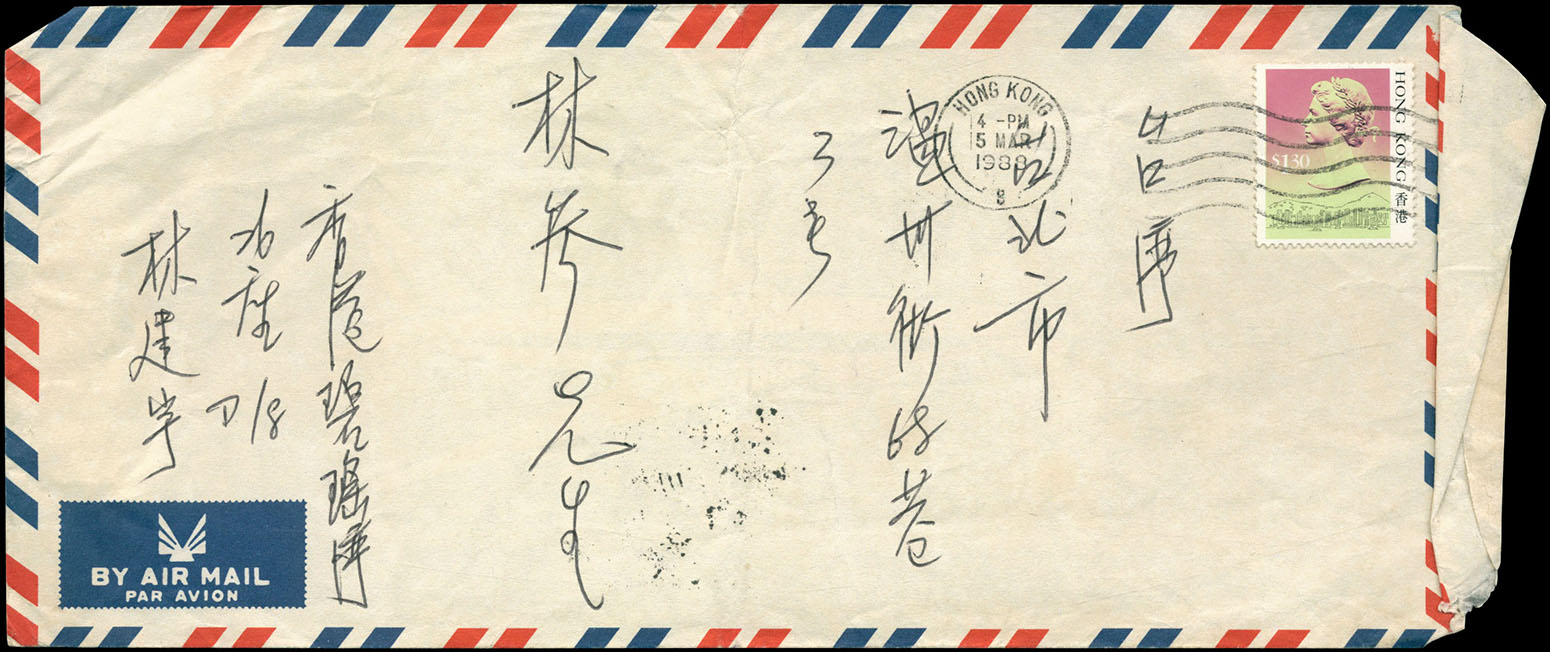 HONG KONG 香港
$1.30
HONG KONG
4 -PM
5 MAR
1988
台灣
台北市
溫州街68巷
3号
林參先生
香港碧瑤灣
林建宇
BY AIR MAIL
PAR AVION